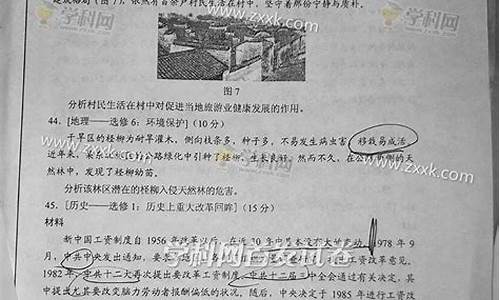 学科网
www.zxxk.com
(图7)，依然有百余户村民生活在村中，坚守着那份宁静与质朴。
图7
分析村民生活在村中对促进当地旅游业健康发展的作用。
44. [地理——选修 6：环境保护]（10 分）
干旱区的柽柳为耐旱灌木，侧向枝条多，种子多，不易发生病虫害，移栽易成活。
近年来，公路绿化中引种了柽柳，生长良好。然而不久，在公路两侧的天
然林中，发现了柽柳幼苗。
分析该林区潜在的柽柳入侵天然林的危害。
45. [历史——选修 1：历史上重大改革回眸]（15 分）
材料
新中国工资制度自 1956 年改革以后，在近 30 年中基本没有大的变动。1978 年 9
月，中共中央发出通知，要求 工资改革意见。
1982 年，中共十二大再次提出要改革工资制度。中共十二届三中全会通过有关决定，其
中提出尤其要改变脑力劳动者报酬偏低的状况。随后，中央决定于 1985 年进行工资改
学科网首发试卷